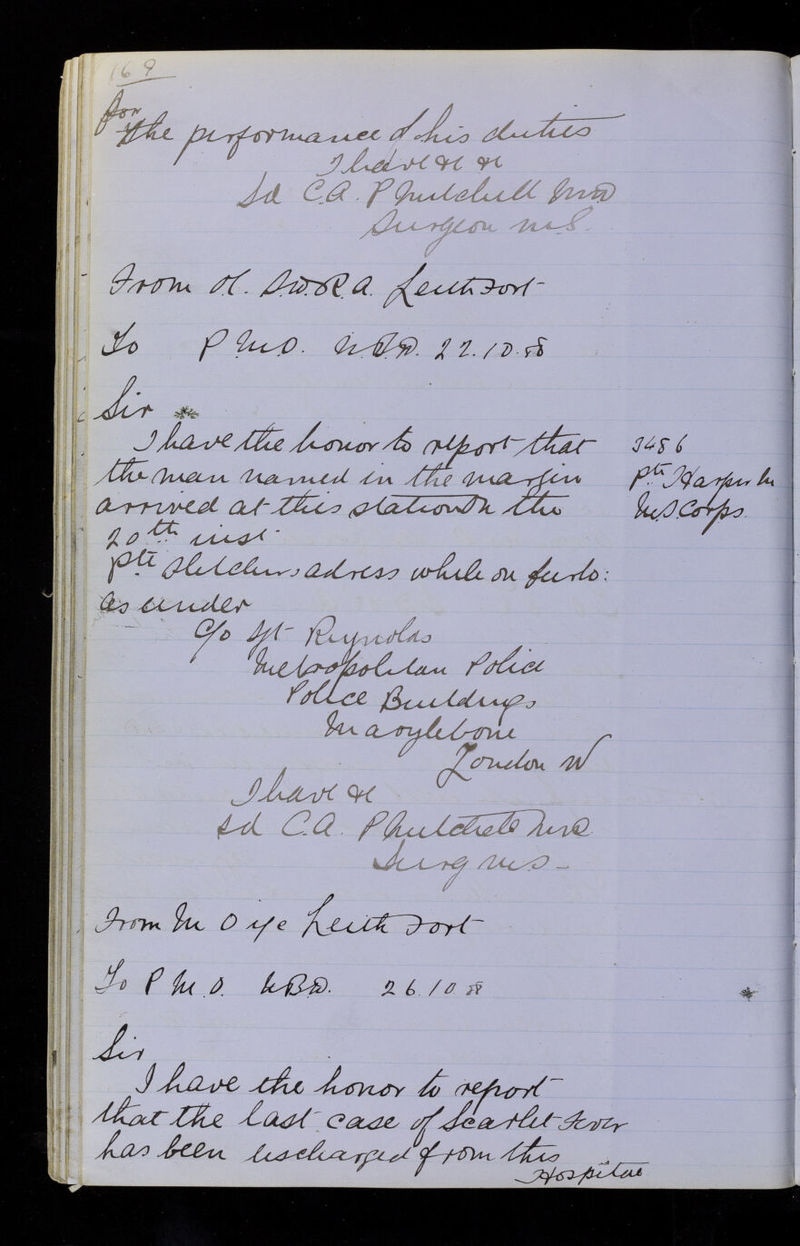 169
for
the performance of his duties
I have &c &c
Sd C.A. P Mitchell MD
Surgeon M.S.
From Leith Fort
To P.M.O. N.B.D. 22.10.88
Sir
I have the honor to report that
3486
the man named in the margin
Pte Harper
arrived at this station on the
M.S. Corps
20th inst.
Pte Fletchers adress while on furlo:
as under
C/o Sgt Reynolds
Metropolitan Police
Police Buildings
Marylebone
London W
I have &c
Sd C.A. P Mitchell MD
Surg M.S.
From M O i/c Leith Fort
To P.M.O. N.B.D. 26.10.88
Sir
I have the honor to report
that the last case of Scarlet Fever
has been discharged from this
Hospital